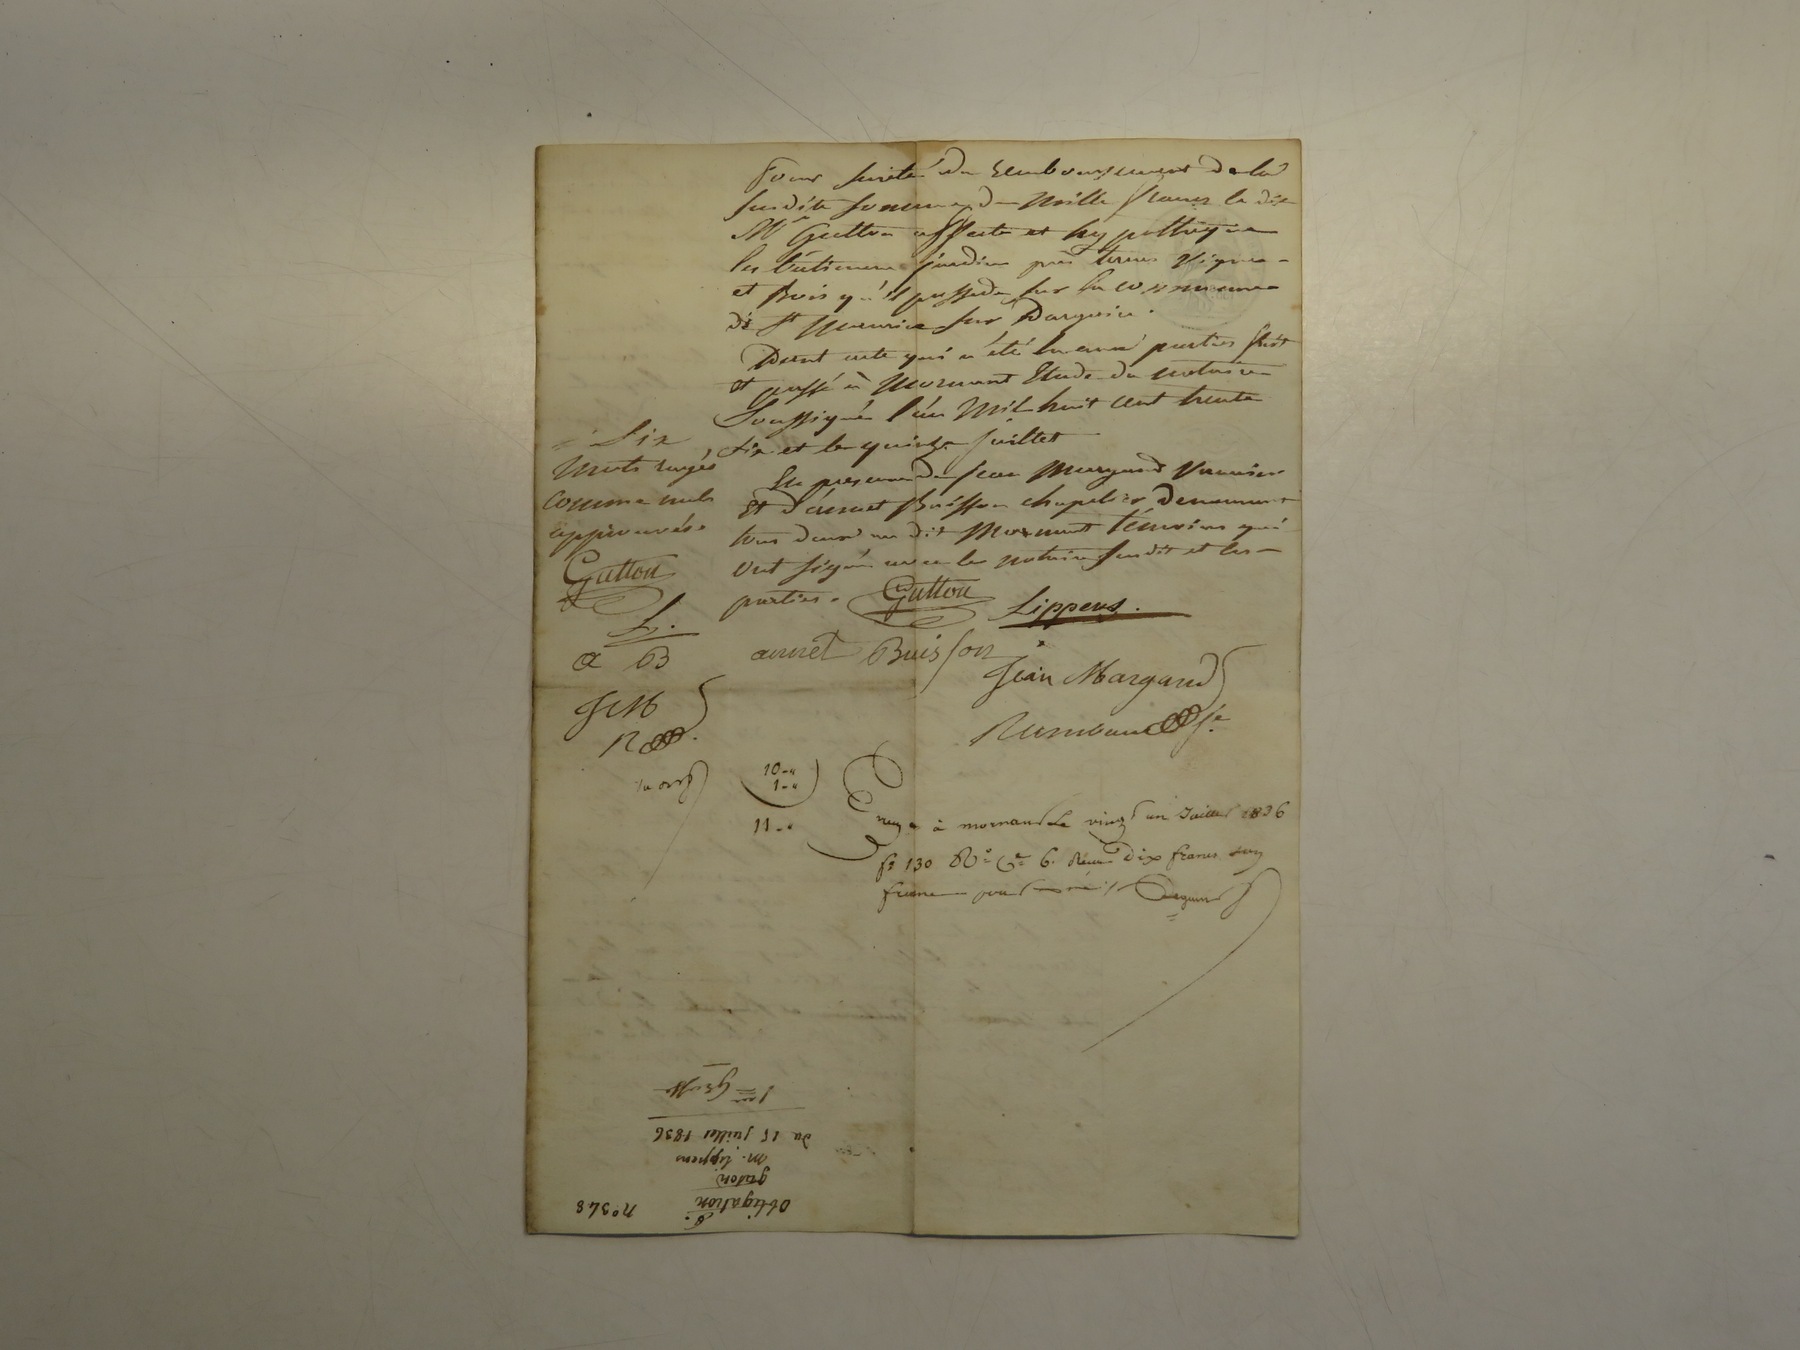 Pour sureté du Remboursement de la
susdite somme de Mille francs le dit
Mr Gutton affecte et hypothèque
les bâtimens jardin prés terres vignes
et Bois qu'il possede sur la commune
de St Maurice sur Dargoire.
Dont acte qui a été lu aux parties fait
et passé à Mornant Etude du notaire
Soussigné l'an Mil huit cent trente
six et le quinze juillet
En presence de Jean Margand
Et d'annet Buisson chapelier demeurant
tous deux au dit Mornant témoins qui
ont signé avec le notaire susdit et les
parties. Gutton Lippens.
annet Buisson
Jean Margand
Six
Mots rayés
comme nuls
approuvés.
Gutton
L.
a B
J M
R
10-"
1-"
11-"
à mornant Le vingt un Juillet 1836
fo 130 Ro Ce 6. Reçu Dix francs
franc pour
n° 348
obligation
guton
m. Lippens
du 15 juillet 1836
1ere Grosse